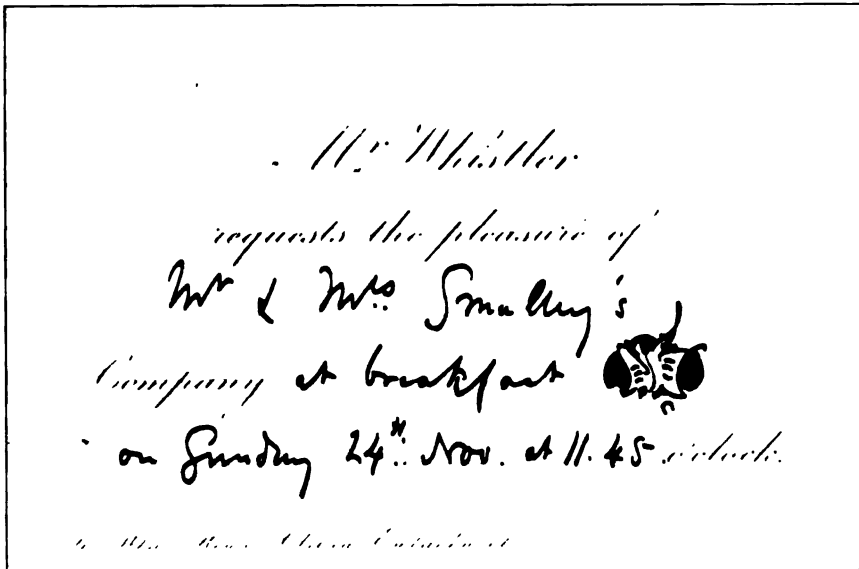 Mr. Whistler
requests the pleasure of
Mr & Mrs. Smalley's
Company at breakfast
on Sunday 24th. Nov. at 11.45 o'clock.